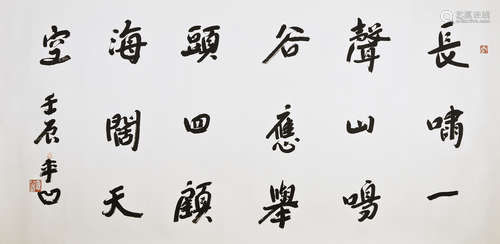 長嘯一
聲山鳴
谷應舉
頭四顧
海闊天
空
壬辰平凹